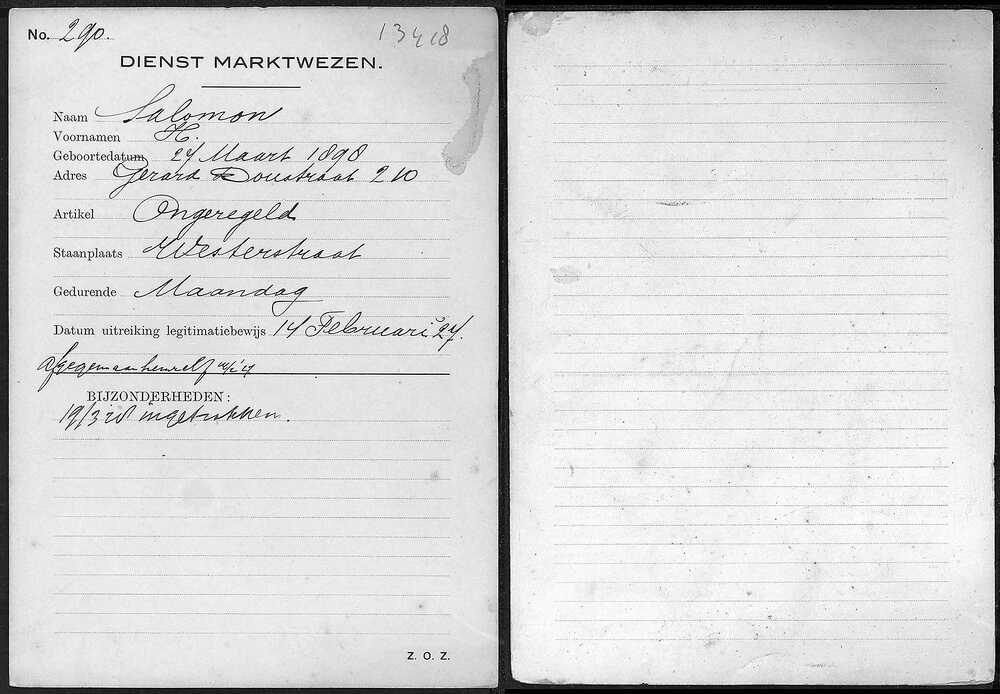 No. 290. 13418
DIENST MARKTWEZEN.
Naam Salomon
Voornamen H.
Geboortedatum 27 Maart 1898
Adres Gerard Doustraat 210
Artikel Ongeregeld
Staanplaats Westerstraat
Gedurende Maandag
Datum uitreiking legitimatiebewijs 14 Februari 27.
BIJZONDERHEDEN:
19/3 28 ingetrokken.
Z. O. Z.